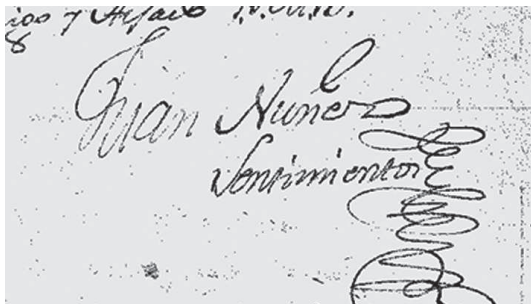 Juan Nuñes
Sentimientos